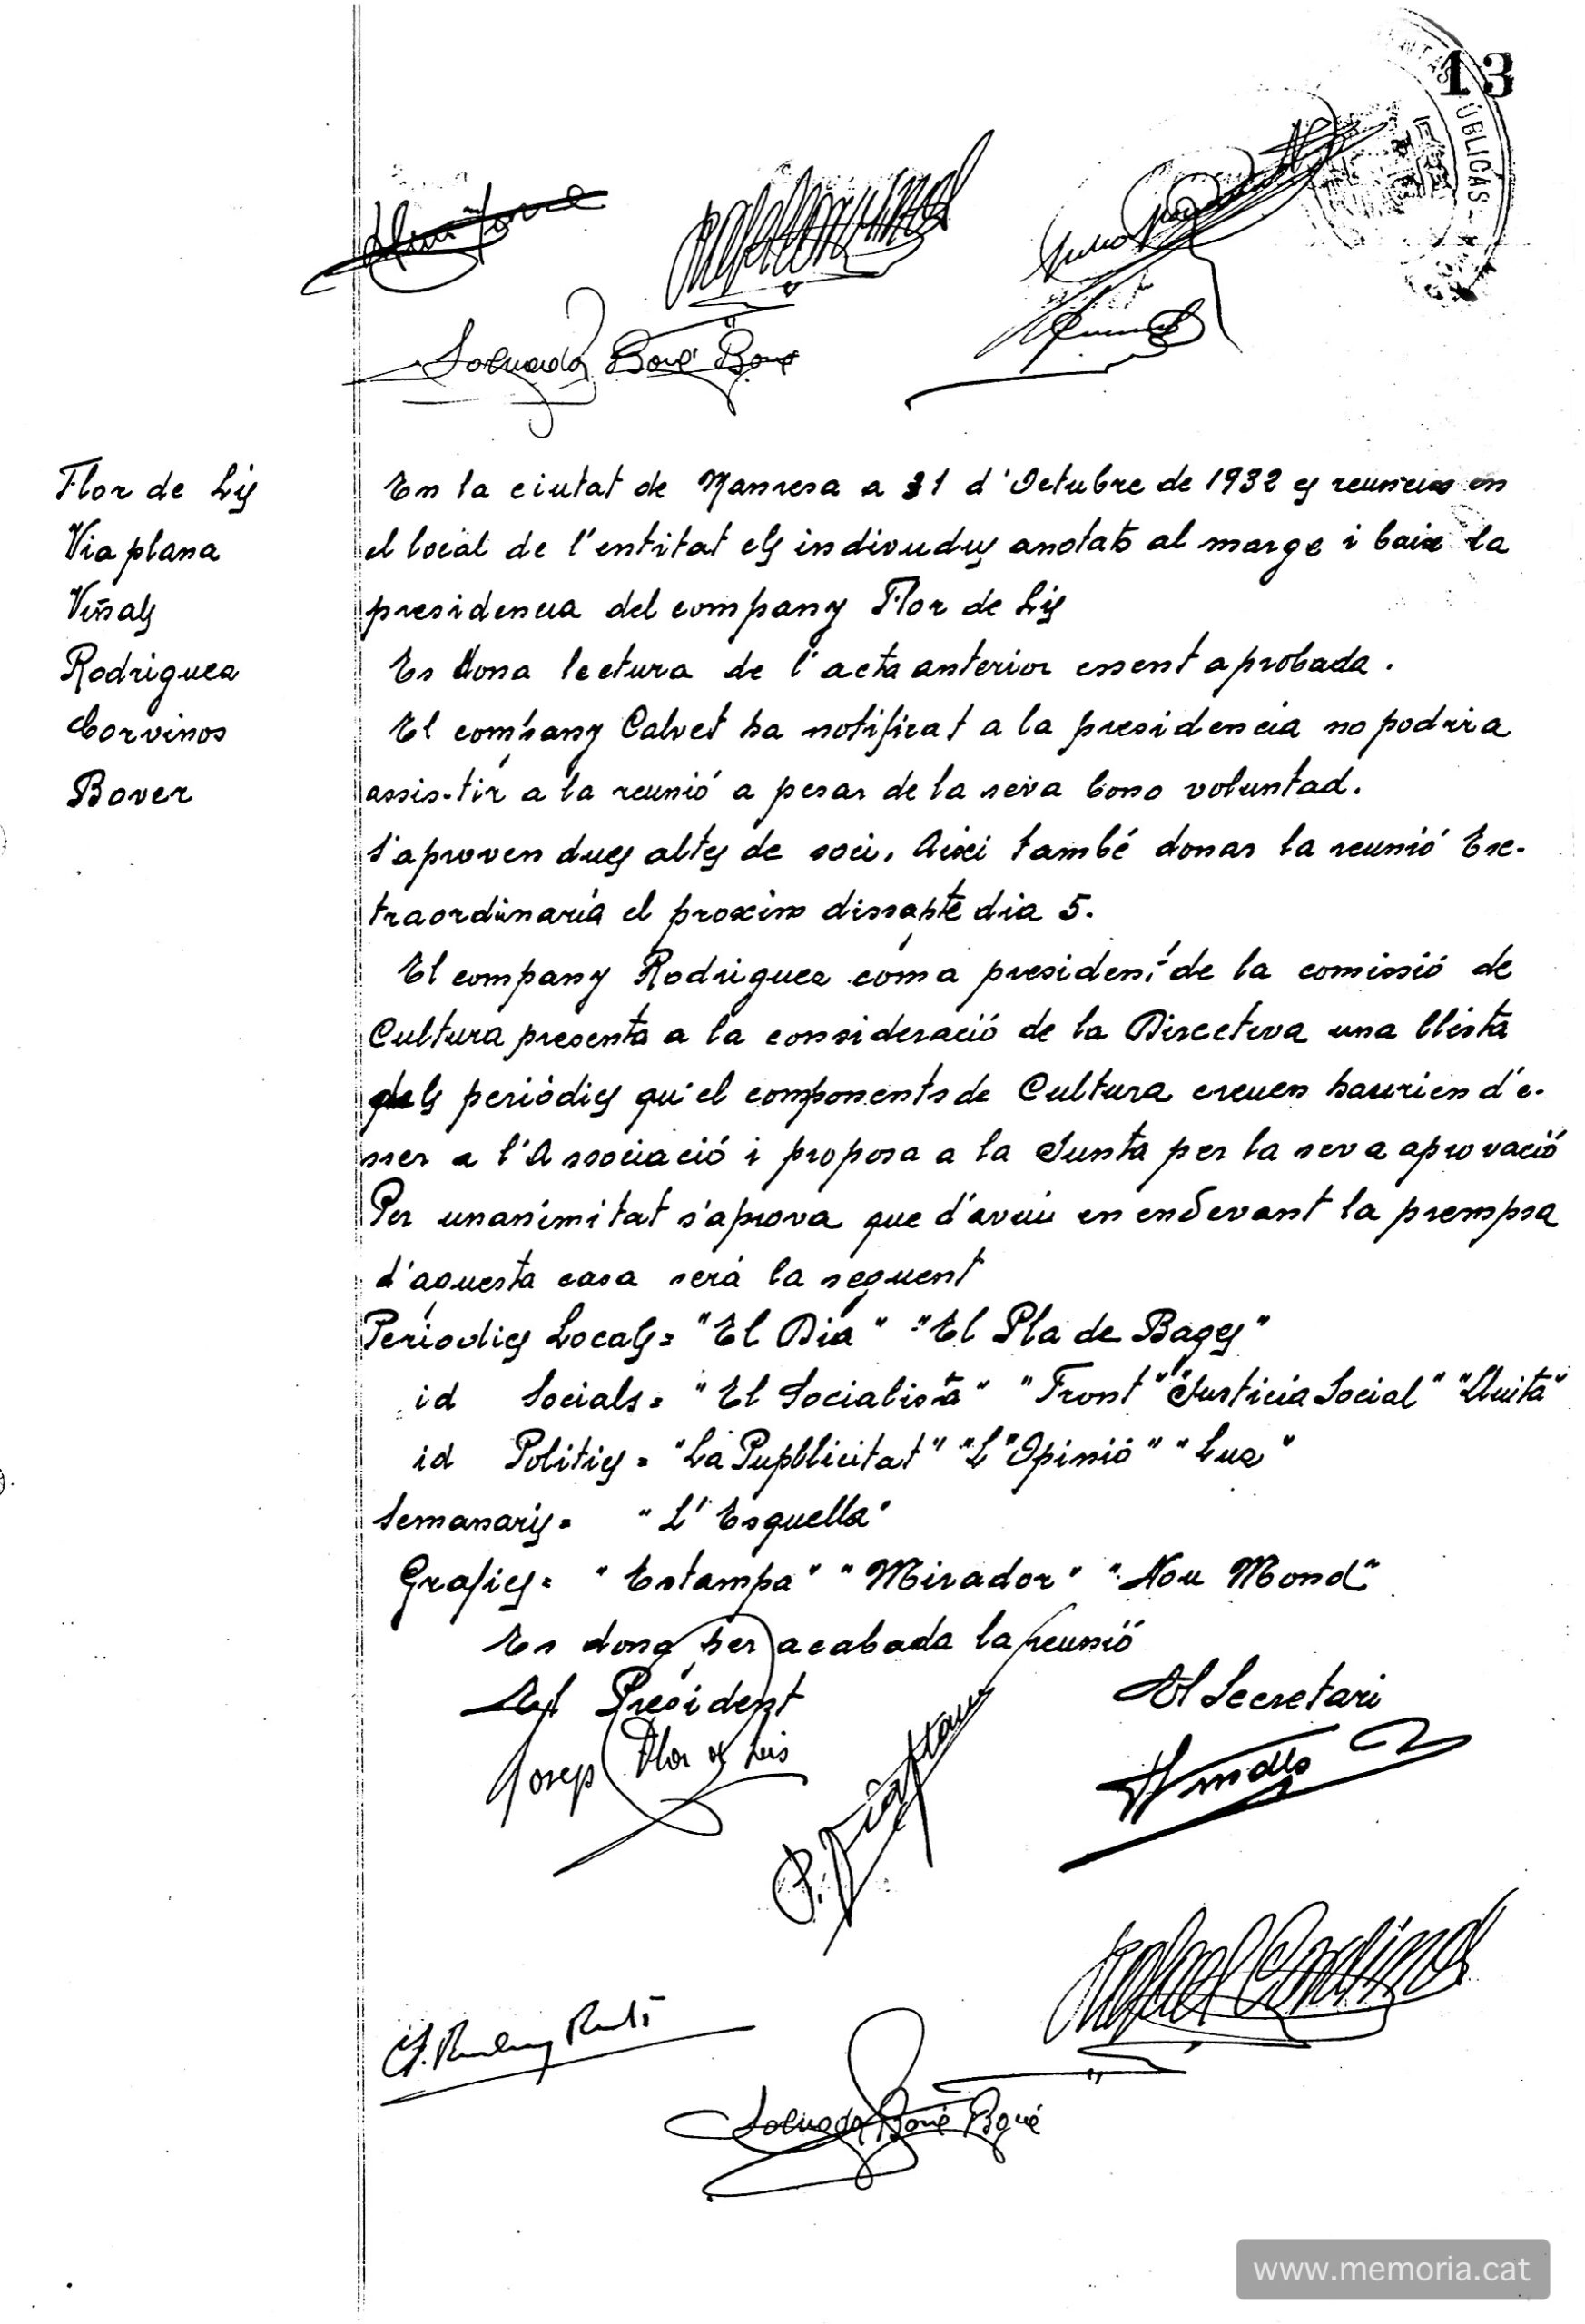 13
ÚBLICAS
Salvador Bové Bové
Flor de Lis
Viaplana
Viñals
Rodriguez
Corvinos
Bover
En la ciutat de Manresa a 31 d'Octubre de 1932 es reuneixen en
el local de l'entitat els indivudus anotats al marge i baix la
presidencia del company Flor de Lis
Es dona lectura de l'acta anterior essent aprobada.
El company Calvet ha notificat a la presidencia no podria
assis-tir a la reunió a pesar de la seva bono voluntad.
S'aproven dues altes de soci. Aixi també donar la reunió Ex-
traordinaria el proxim dissapte dia 5.
El company Rodriguez com a president de la comissió de
Cultura presenta a la consideració de la Directiva una llista
dels periòdics qu'el components de Cultura creuen haurien d'e-
sser a l'Associació i proposa a la Junta per la seva aprovació
Per unanimitat s'aprova que d'avui en endevant la prempsa
d'aquesta casa será la seguent
Periodics Locals = "El Dia" "El Pla de Bages"
id Socials = "El Socialista" "Front" "Justicia Social" "Lluita"
id Politics = "La Pupblicitat" "L'Opinió" "Luz"
Semanaris = "L'Esquella"
Grafics = "Estampa" "Mirador" "Nou Mond"
Es dona per acabada la reunió
El President
El Secretari
Josep Flor de Lis
Rafael Corvinos
Salvador Bové Bové
www.memoria.cat